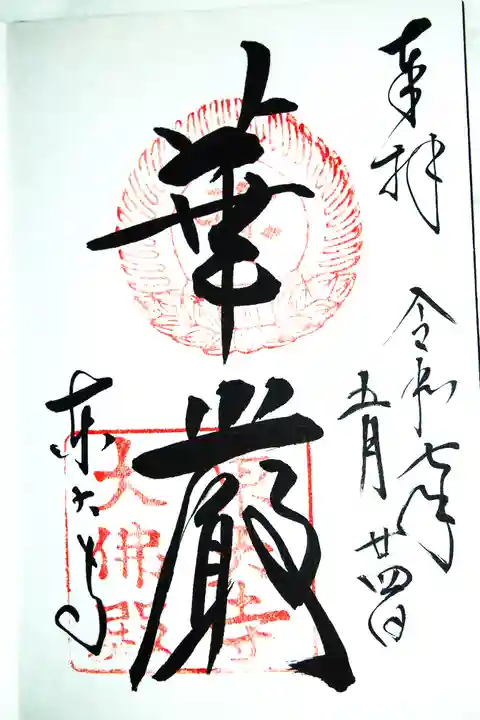 奉拝
令和七年
五月廿四日
華厳
東大寺
東大寺
大佛殿